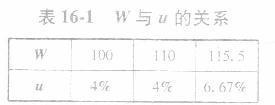 表 16-1 W 与 u 的关系
W 100 110 115.5
u 4% 4% 6.67%